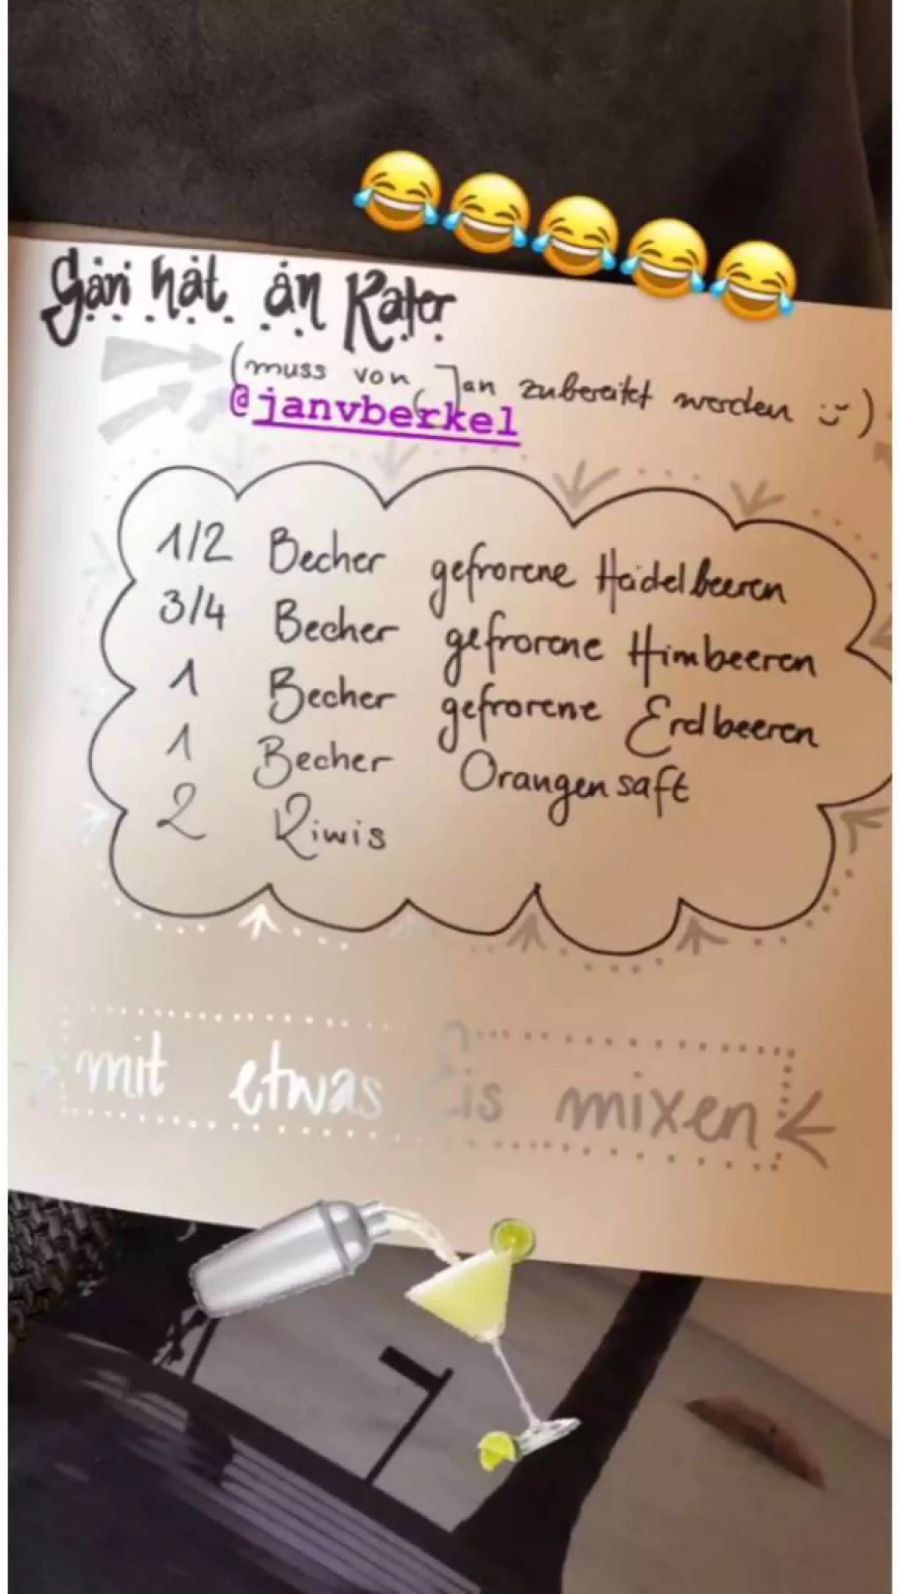 Gäri hät än Kater
(muss von Jan zubereitet werden :))
@janvberkel
1/2 Becher gefrorene Heidelbeeren
3/4 Becher gefrorene Himbeeren
1 Becher gefrorene Erdbeeren
1 Becher Orangensaft
2 Kiwis
mit etwas Eis mixen